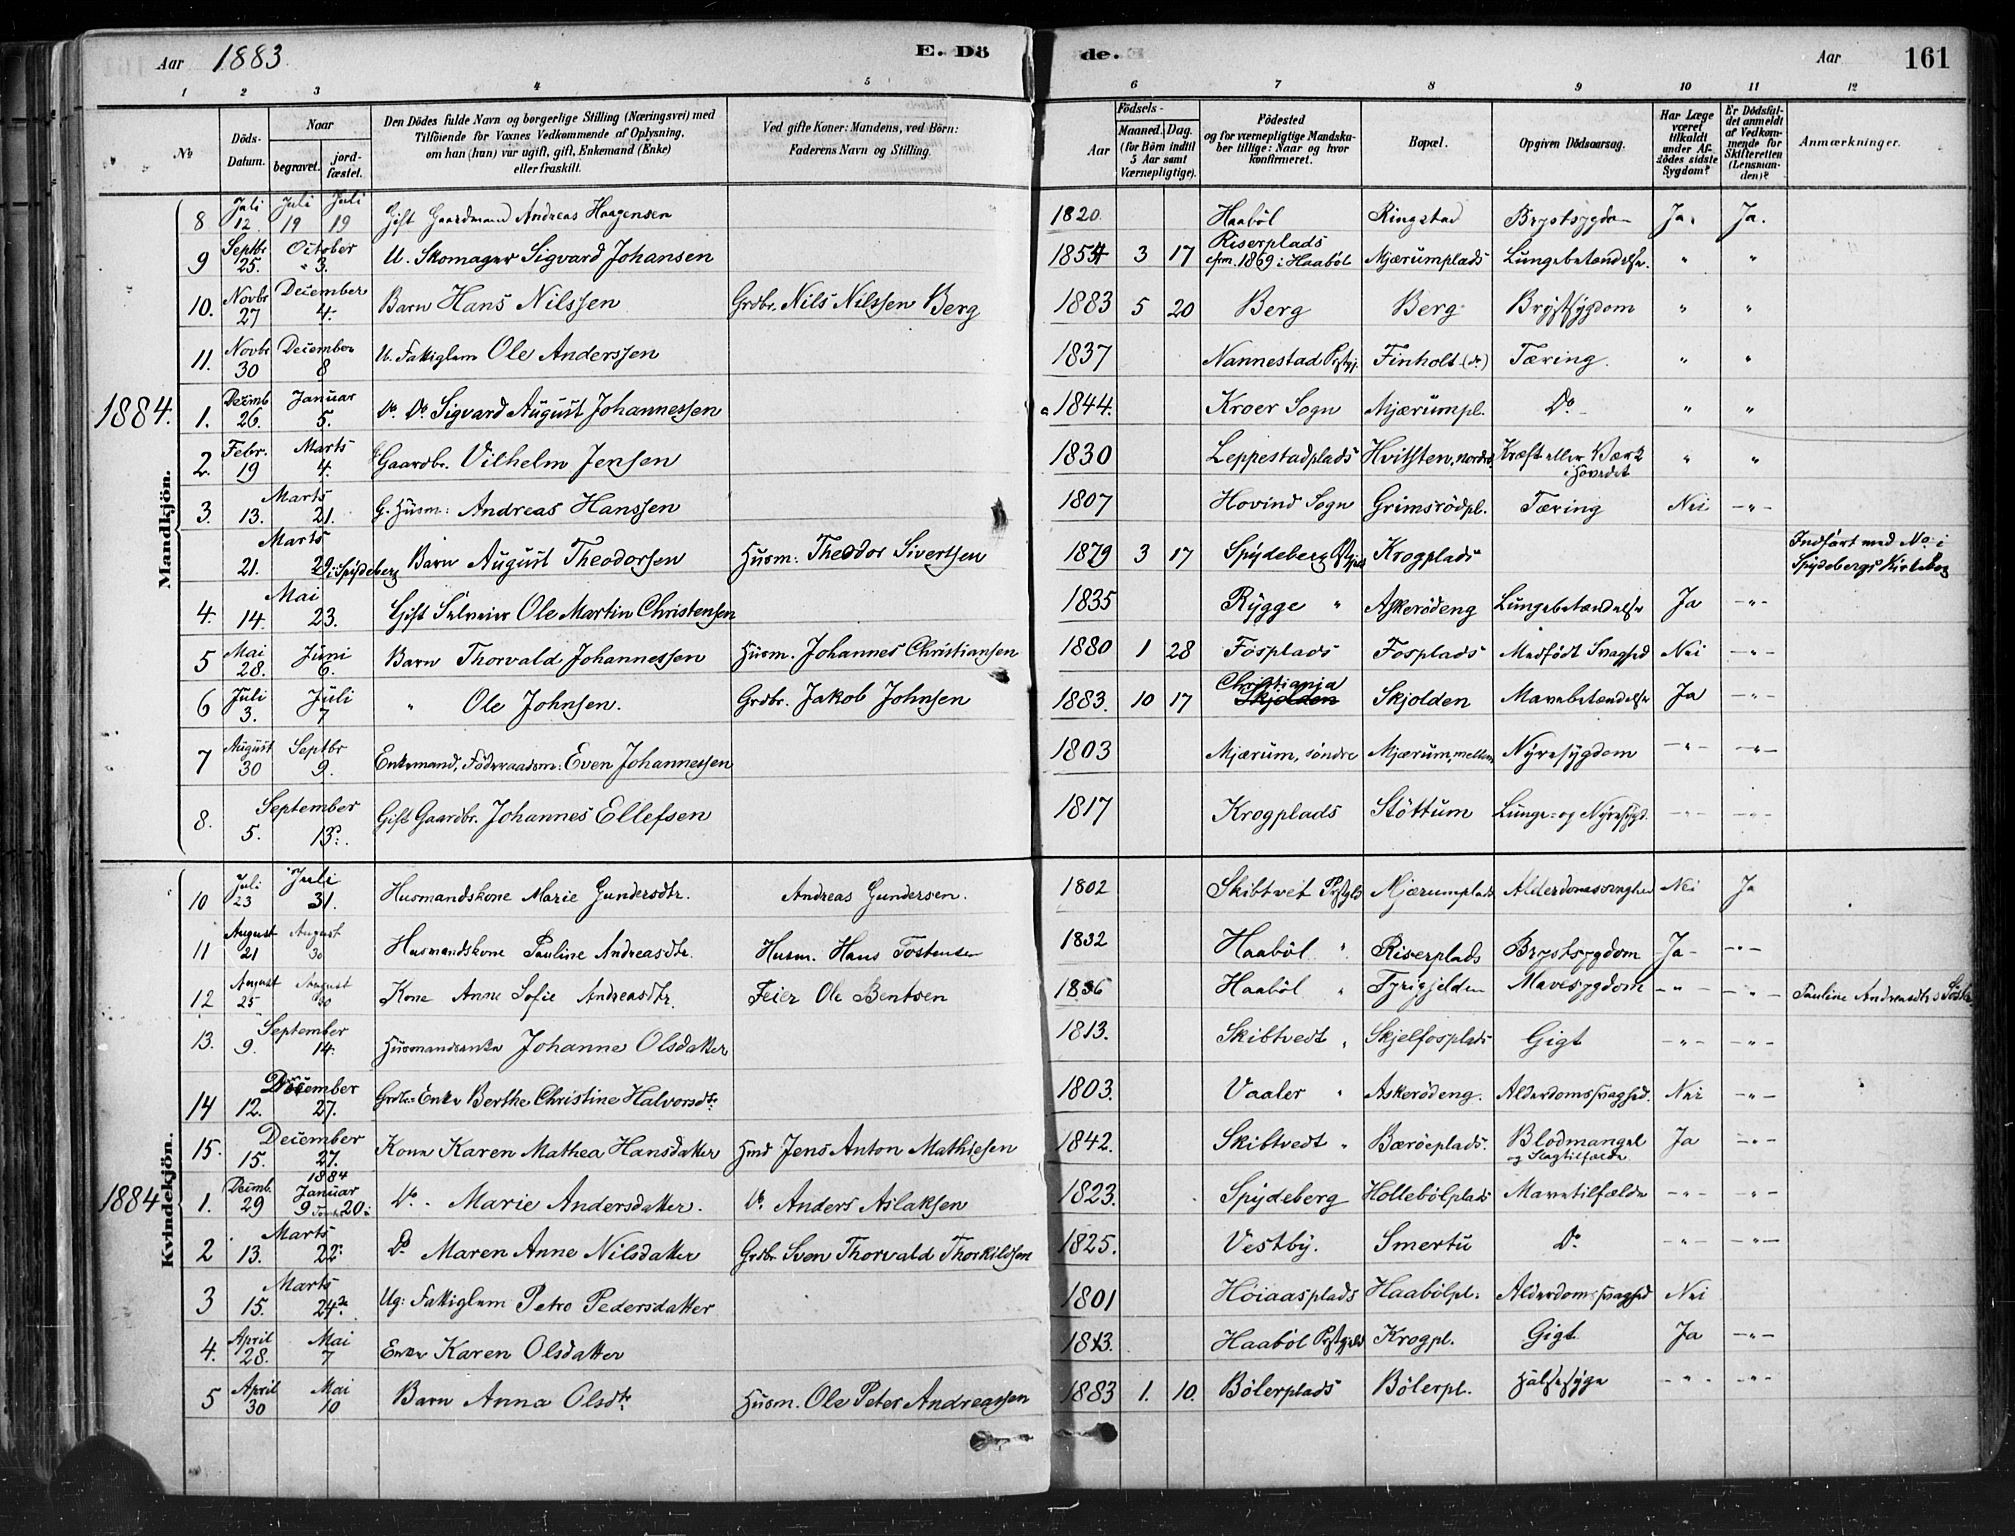 Aar 1883. E. Döde. Aar 161
1 2 3 4 5 6 7 8 9 10 11 12
No Döds-Datum. Naar begravet. jord-fæstet. Den Dödes fulde Navn og borgerlige Stilling (Næringsvei) med Tilföiende for Voxnes Vedkommende af Oplysning, om han (hun) var ugift, gift, Enkemand (Enke) eller fraskilt. Ved gifte Koner: Mandens, ved Børn: Faderens Navn og Stilling. Födsels- Aar Maaned. Dag. (for Börn indtil 5 Aar samt Værnepligtige). Födested og for værnepligtige Mandskaber tillige: Naar og hvor konfirmeret. Bopæl. Opgiven Dödsaarsag. Har Læge været tilkaldt under Afdödes sidste Sygdom? Er Dödsfaldet anmeldt af Vedkommende for Skifteretten (Lensmanden)? Anmærkninger.
Mandkjön.
8 Juli 12. Juli 19 Juli 19 Gift Gaardmand Andreas Haagensen 1820. Haaböl Ringstad Brystsygdom Ja. Ja.
9 Septbr. 25. October 3. U. Skomager Sigvard Johansen 1854 3 17 Riserplads cfm. 1869 i Haaböl Mjærumplads Lungebetændelse. " "
10. Novbr 27 December 4. Barn Hans Nilssen Grdbr. Nils Nilssen Berg 1883 5 20 Berg Berg Brystsygdom " "
11. Novbr 30 December 8 U. Fattiglem Ole Anderssen 1837 Nannestad Prstgj. Finholt Tæring. " "
1884. 1. Decmb 26. Januar 5. Do Do Sigvard August Johannessen 1844. Kroer Sogn Mjærumpl. Do " "
2. Febr. 19 Marts 4. Gaardbr. Vilhelm Jensen 1830 Leppestadplads Hvitsten, nordre Kræft eller Værk i Hovedet " "
3. Marts 13. 21. G. Husm: Andreas Hanssen 1807 Hovind Sogn Grimsrödpl. Tæring Nei -"-
Marts 21. 29 i Spydeberg Barn August Theodorsen Husm: Theodor Sivertsen 1879 3 17 Spydeberg Krogplads Indfört med No: i Spydebergs Kirkebog
4. Mai 14. 23. Gift Selveier Ole Martin Christensen 1835 Rygge " Askerödeng Lungebetændelse Ja -"-
5 Mai 28. Juni 6. Barn Thorvald Johannessen Husm. Johannes Christiansen 1880 1 28 Fosplads Fosplads Medfödt Svaghed Nei -"-
6 Juli 3. Juli 7 " Ole Johnsen. Grdbr. Jakob Johnsen 1883. 10 17 Christiania Skjolden Skjolden Mavebetændelse Ja -"-
7 August 30 Septbr 9. Enkemand, Föderaadsm: Even Johannessen 1803 Mjærum, söndre Mjærum, mellem Nyresygdom -"- -"-
8. September 5. 15. Gift Gaardbr. Johannes Ellefsen 1817 Krogplads Stöttum Lunge- og Nyresygd. -"- -"-
Kvindekjön.
10 Juli 23 Juli 31. Husmandskone Marie Gundersdtr. Andreas Gundersen. 1802 Skibtvet Prstgld Mjærumplads Alderdomssvaghed Nei Ja
11 August 21 August 30 Husmandskone Pauline Andreasdtr. Husm. Hans Tostensen 1832 Haaböl " Riserplads Brystsygdom Ja- -"-
12 August 25 August 30 Kone Anne Sofie Andreasdtr. Feier Ole Bentsen 1836 Haaböl " Fyrigjelden Mavesygdom -"- -"- Pauline Andreasdtrs Söster
13. September 9. 14. Husmandsenke Johanne Olsdatter 1813. Skibtvedt " Skjelfosplads Gigt -"- -"-
14 December 12. 27. Grdbr. Enke Berthe Christine Halvorsdtr. 1803. Vaaler " Askerödeng. Alderdomssvaghed. Nei -"-
15. December 15. 27. Kone Karen Mathea Hansdatter Hmd Jens Anton Mathiesen 1842. Skibtvedt " Bæröeplads. Blodmangel og Slagtilfælde Ja -"-
1884 1. Decmb. 29 1884 Januar 9 20. Do. Marie Andersdatter. Do. Anders Aslaksen 1823. Spydeberg Hollebölplads Mavetilfælde -"- -"-
2 Marts 13. 22. Do Maren Anne Nilsdatter Grdbr Sven Thorvald Thorkildsen 1825. Vestby. Smertu Do. -"- -"-
3 Marts 15. 24de. Ug: Fattiglem Petro Pedersdatter 1801 Höiaasplads Haabölpl. Alderdomssvaghed Nei
4. April 28. Mai 7 Enke Karen Olsdatter 1813. Haaböl Prstgjeld Krogpl. Gigt Ja -"-
5 April 30 Mai 10 Barn Anna Olsdtr. Husm. Ole Peter Andreassen 1883 1. 10. Bölerplads Bölerpl. Halssyge -"- -"-